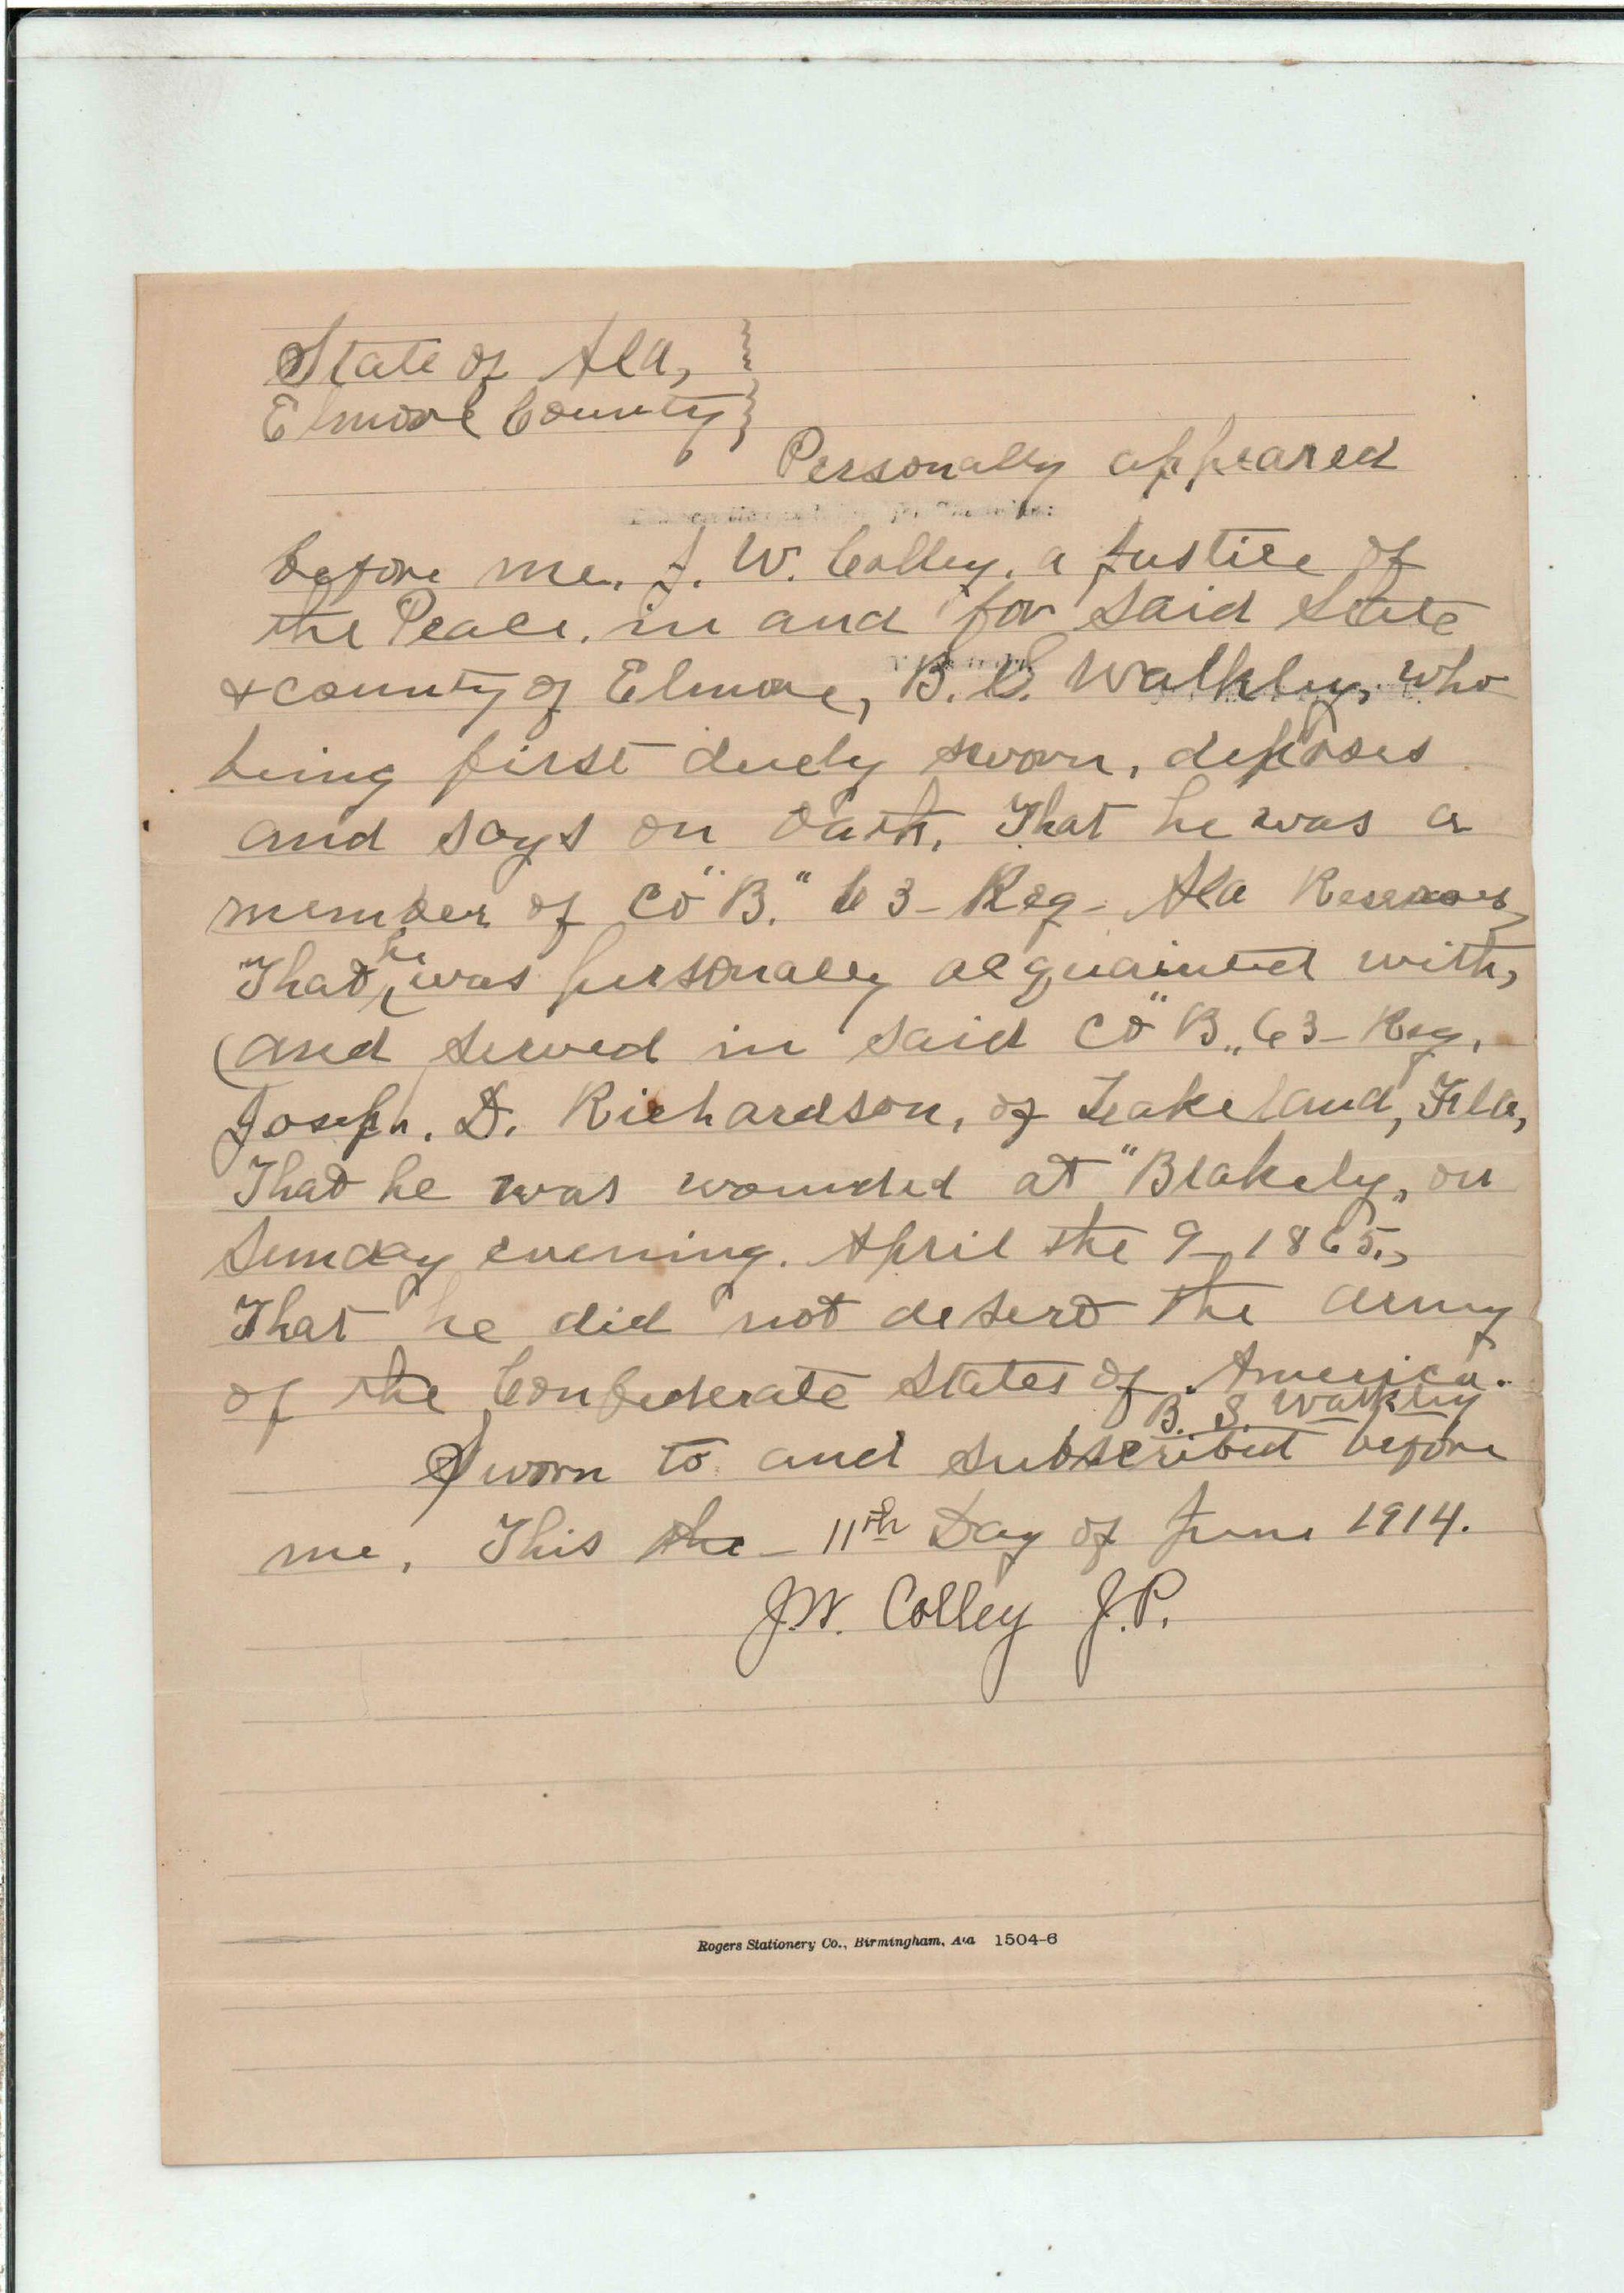 State of Ala,
Elmore County,
Personally appeared
before me, J. W. Colley, a Justice of
the Peace, in and for said State
& county of Elmore, B. S. Walkley, who
being first duely sworn, deposes
and says on oath, That he was a
member of Co "B." 63 - Reg - Ala Reserves,
That he was personally acquainted with,
(and served in said Co "B" 63 - Reg,
Joseph. D. Richardson, of Lakeland, Fla,
That he was wounded at "Blakely" on
Sunday evening. April the 9 - 1865.,
That he did not desert the army
of the Confederate States of America.
B. S. Walkley
Sworn to and subscribed before
me, This the - 11th Day of June 1914.
J.W. Colley J.P.
Rogers Stationery Co., Birmingham, Ala 1504-6